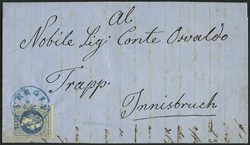 Al
Nobile Sig: Conte Osvaldo
Trapp.
Innisbruch